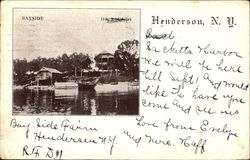 BAYSIDE
Henderson, N. Y.
Sacketts Harbor
We will be here
till Sept! and would
like to have you
come and see us
Love from Evelyn
and Mrs. Haff
Bay Side Farm
Henderson N.Y
R.F.D 11